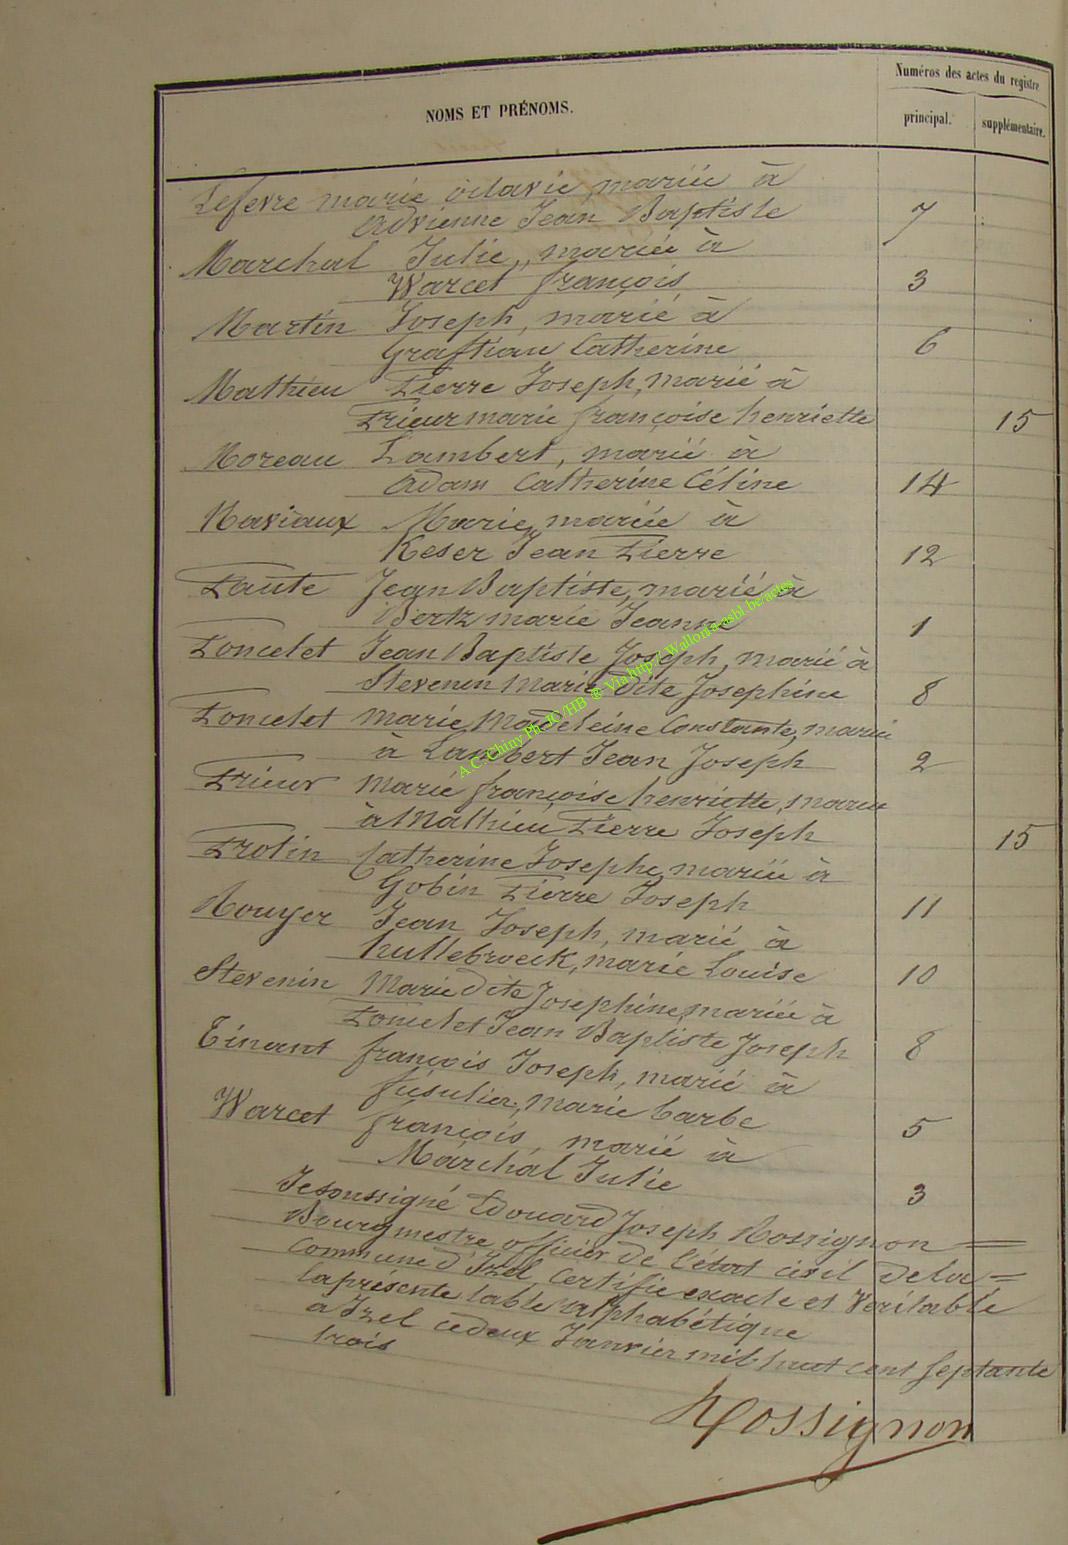 NOMS ET PRÉNOMS.
Numéros des actes du registre
principal.
supplémentaire.
Lefevre marie octavie, mariée à
Adrienne Jean Baptiste 7
Marchal Julie, mariée à
Warcet françois 3
Martin Joseph, marié à
Graftiau Catherine 6
Mathieu Pierre Joseph, marié à
Prieur marie françoise henriette 15
Moreau Lambert, marié à
Adam Catherine Céline 14
Naviaux Marie, mariée à
Keser Jean Pierre 12
Paute Jean Baptiste, marié à
Bertz marie Jeanne 1
Poncelet Jean Baptiste Joseph, marié à
Stevenin Marie dite Josephine 8
Poncelet Marie Madeleine Constante, mariée
à Lambert Jean Joseph 2
Prieur Marie françoise henriette, mariée
à Mathieu Pierre Joseph 15
Protin Catherine Josephe, mariée à
Gobin Pierre Joseph 11
Rouyer Jean Joseph, marié à
hullebroeck, marie Louise 10
Stevenin Marie dite Josephine, mariée à
Poncelet Jean Baptiste Joseph 8
Tinant françois Joseph, marié à
fusulier, marie barbe 5
Warcet françois, marié à
Marchal Julie 3
Je soussigné Edouard Joseph Rossignon
Bourgmestre officier de l'état civil de la
commune d'Izel, certifie exacte et Véritable
la présente table alphabétique
a Izel ce deux Janvier mil huit cent septante
trois
Rossignon
A.C. Chiny Ph.JC/HB ® Via http:/ Wallonia-asbl.be/actes